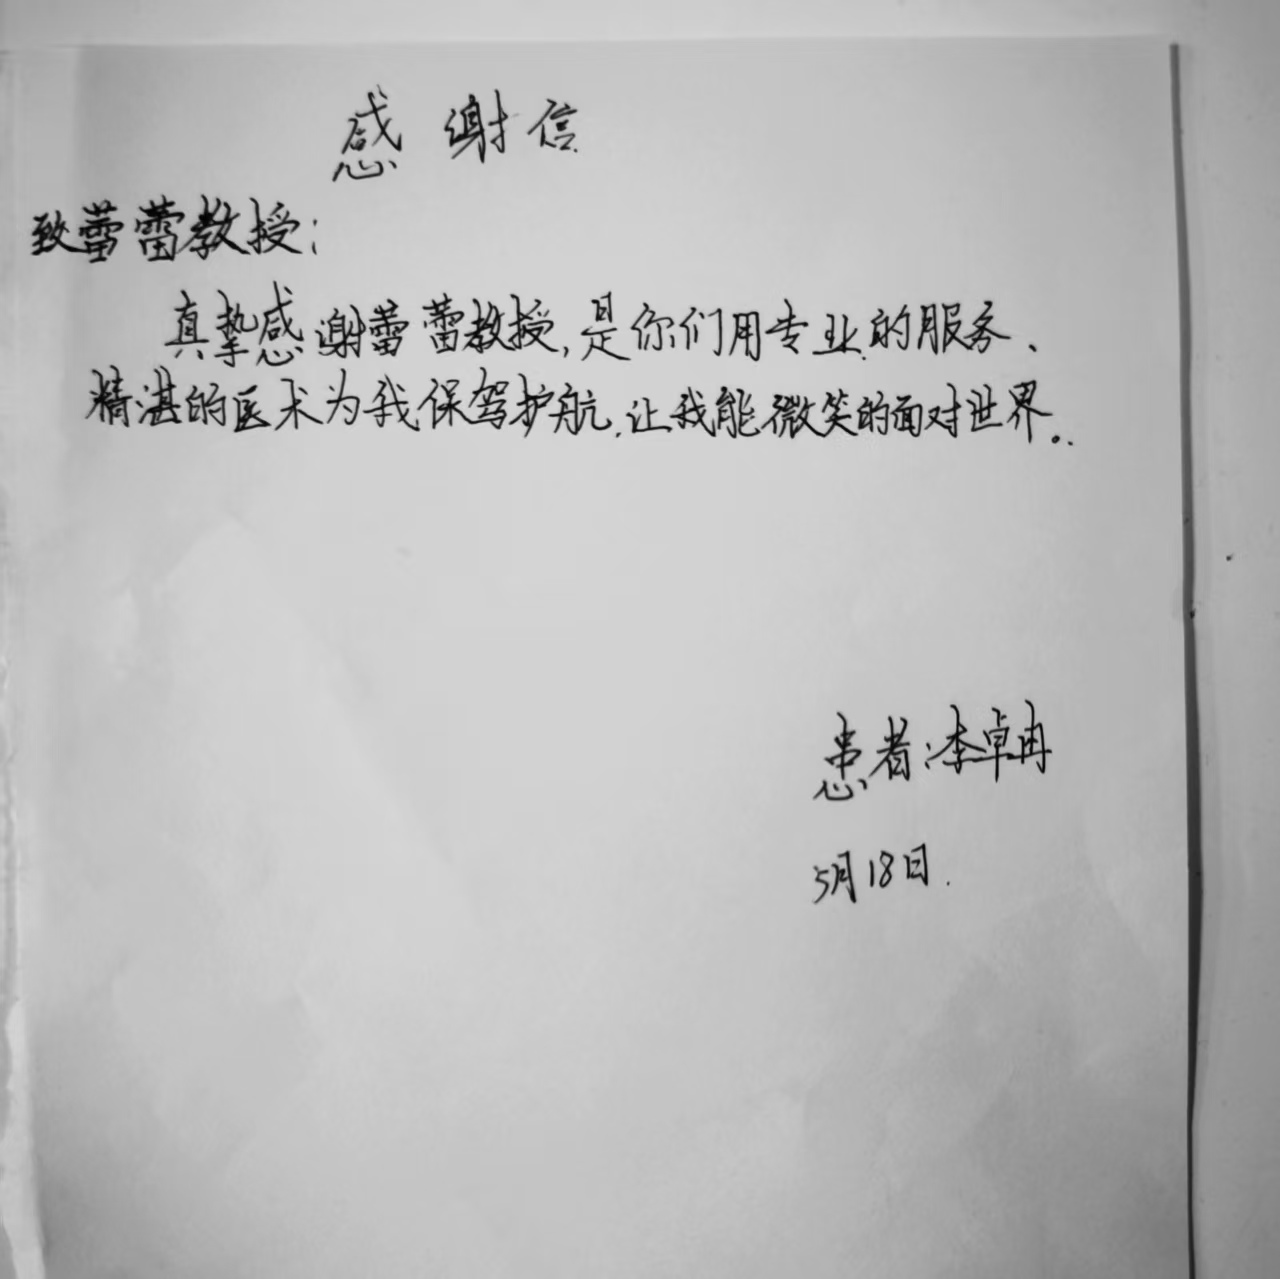 感谢信
致蕾蕾教授:
真挚感谢蕾蕾教授,是你们用专业的服务、
精湛的医术为我保驾护航,让我能微笑的面对世界。
患者:李卓冉
5月18日.